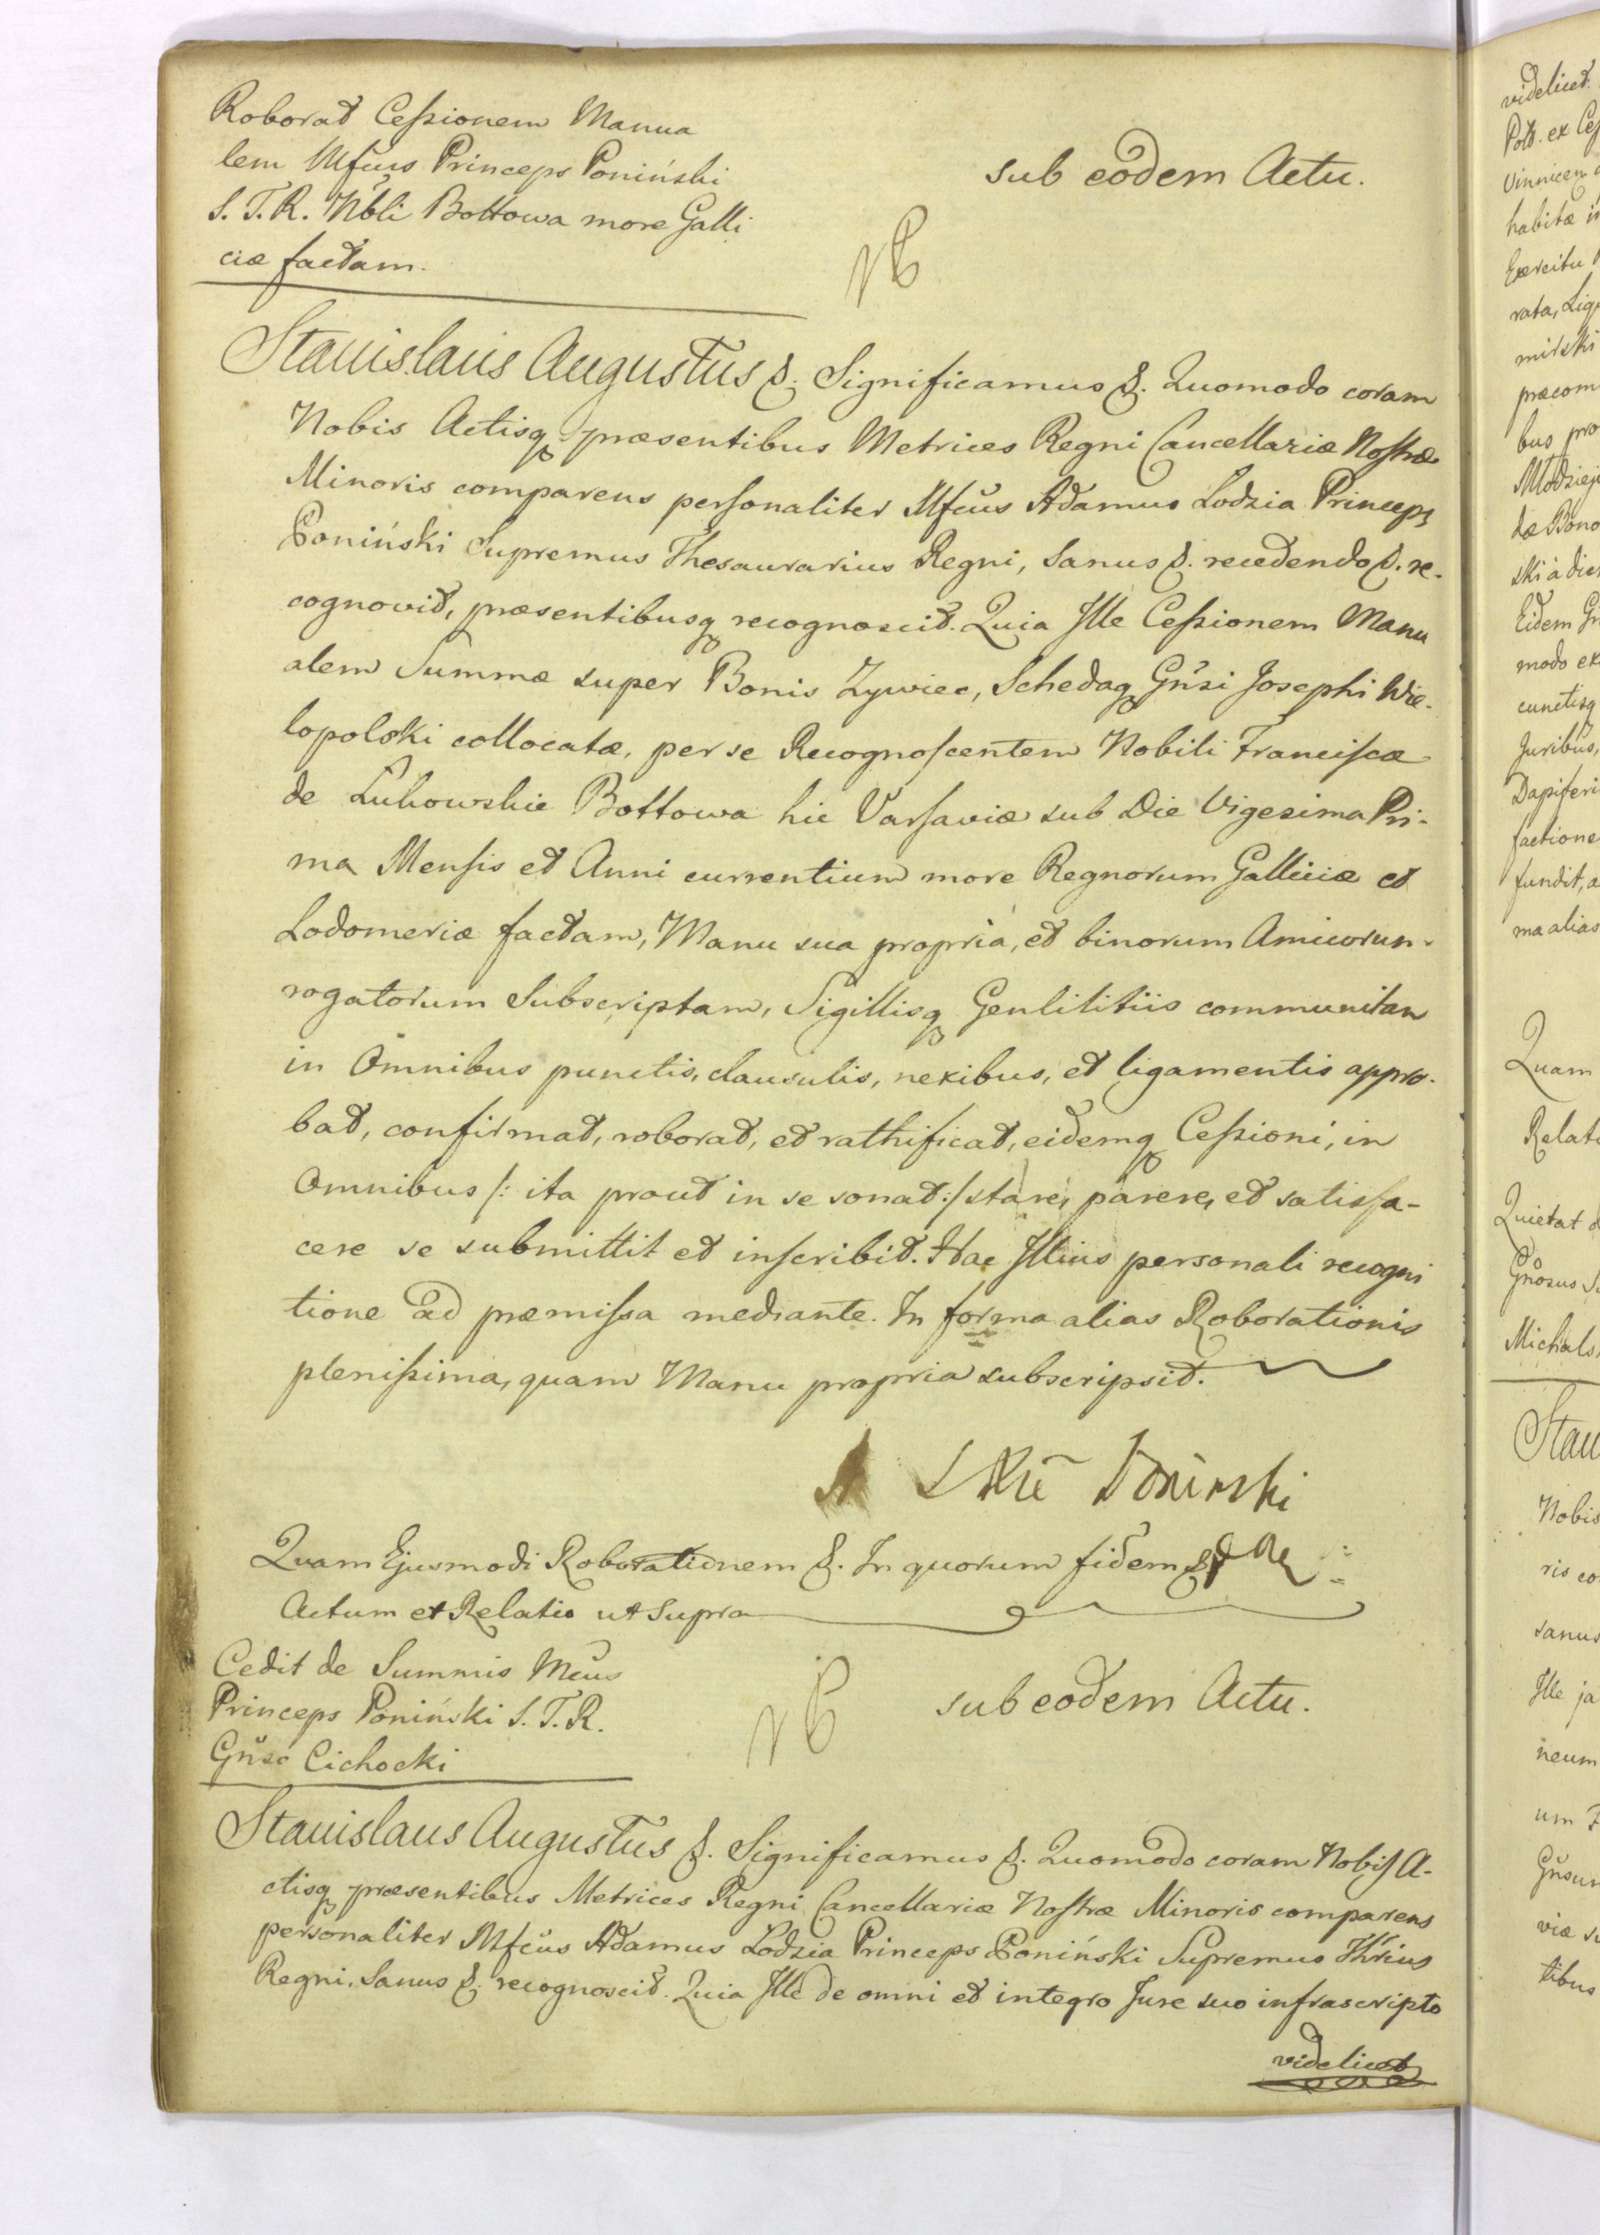 Roborat Cessionem Manua
lem Mfcus Princeps Poniński
S. T. R. Nbli Bottowa more Galli
ciæ factam.
sub eodem Actu.
Stanislaus Augustus &. Significamus &. Quomodo coram
Nobis Actisq præsentibus Metrices Regni Cancellariæ Nostræ
Minoris comparens personaliter Mfcus Adamus Lodzia Princeps
Poniński Supremus Thesaurarius Regni, Sanus &. recedendo &. re-
cognovit, præsentibusq recognoscit. Quia Ille Cessionem Manu
alem Summæ super Bonis Zywiec, Schedaq Gnsi Josephi Wie-
lopolski collocatæ, per se Recognoscentem Nobili Franciscæ
de Bottowa hic Varsaviæ sub Die Vigesima Pri-
ma Mensis et Anni currentium more Regnorum Galliciæ et
Lodomeriæ factam, Manu sua propria, et binorum Amicorum
rogatorum Subscriptam, Sigillisq Gentilitiis communitam
in Omnibus punctis, clausulis, nexibus, et ligamentis appro-
bat, confirmat, roborat, et rathificat, eidemq Cessioni, in
Omnibus /: ita prout in se sonat :/ stare, parere, et satisfa-
cere se submittit et inscribit. Hac Illius personali recogni
tione ad præmissa mediante. In forma alias Roborationis
plenissima, quam Manu propria subscripsit.
Poninski
Quam Ejusmodi Roborationem &. In quorum fidem &
Actum et Relatio ut Supra
Cedit de Summis Mcus
Princeps Poniński S. T. R.
Gnso Cichocki
sub eodem Actu.
Stanislaus Augustus &. Significamus &. Quomodo coram Nobis A-
ctisq præsentibus Metrices Regni Cancellariæ Nostræ Minoris comparens
personaliter Mfcus Adamus Lodzia Princeps Poniński Supremus Thrius
Regni. Sanus &. recognoscit. Quia Ille de omni et integro Jure suo infrascripto
videlicet